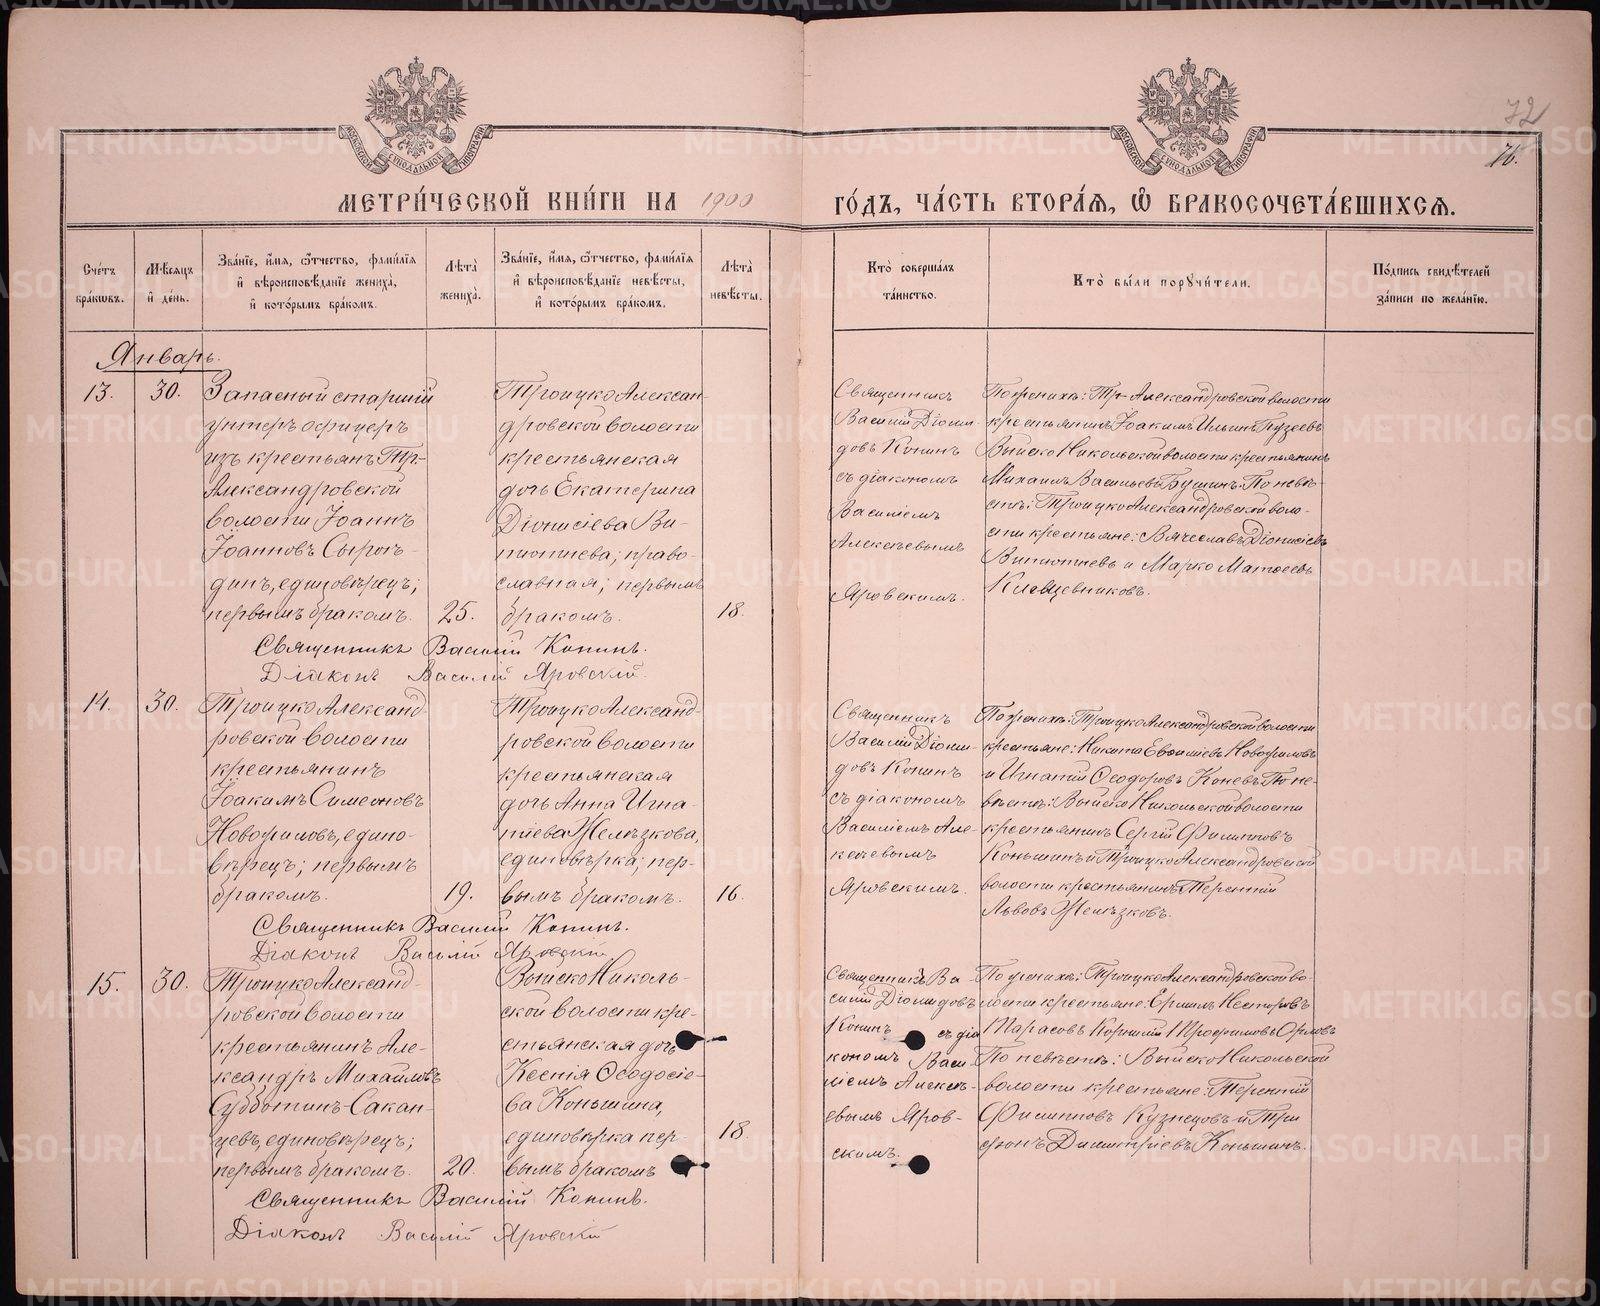 72
76.
МОСКОВСКОЙ СѴНОДАЛЬНОЙ ТИПОГРАФІИ
МОСКОВСКОЙ СѴНОДАЛЬНОЙ ТИПОГРАФІИ
МЕТРИ́ЧЕСКОЙ КНИ́ГИ НА 1900 ГО́ДЪ, ЧА́СТЬ ВТОРА́Я, Ѽ БРАКОСОЧЕТА́ВШИХСЯ.
Сче́тъ
бра́кѡвъ.
Мѣ́сяцъ
и҆ де́нь.
Зва́нїе, и҆́мя, ѻ҆́тчество, фами́лїя
и҆ вѣроисповѣ́данїе жениха̀,
и҆ кото́рымъ бра́комъ.
Лѣ́та
жениха̀.
Зва́нїе, и҆́мя, ѻ҆́тчество, фами́лїя
и҆ вѣроисповѣ́данїе невѣ́сты,
и҆ кото́рымъ бра́комъ.
Лѣ́та
невѣ́сты.
Кто̀ соверша́лъ
та́инство.
Кто̀ бы́ли порꙋчи́тели.
По́дпись свидѣ́телей
за́писи по жела́нїю.
Январь.
13.
30.
Запасный старшій
унтеръ офицеръ
изъ крестьянъ Тр.-
Александровской
волости Іоаннъ
Іоанновъ Сыропъ-
динъ, единовѣрецъ;
первымъ бракомъ.
25.
Троицко Алексан-
дровской волости
крестьянская
дочь Екатерина
Діонисіева Ви-
тютнева; право-
славная; первымъ
бракомъ.
18.
Священникъ
Василій Діоми-
довъ Конинъ
съ діакономъ
Василіемъ
Алексѣевымъ
Яровскимъ.
По женихѣ: Тр-Александровской волости
крестьянинъ Іоакимъ Ильинъ Пузеевъ
Выйско Никольской волости крестьянинъ
Михаилъ Васильевъ Бушинъ. По невѣ-
стѣ: Троицко Александровской воло-
сти крестьяне: Вячеславъ Діонисіевъ
Витютневъ и Марко Матѳеевъ
Клевцевниковъ.
Священникъ Василій Конинъ.
Діаконъ Василій Яровскій.
14.
30.
Троицко Александ-
ровской волости
крестьянинъ
Іоакимъ Симеоновъ
Новофиловъ, едино-
вѣрецъ; первымъ
бракомъ.
19.
Троицко Александ-
ровской волости
крестьянская
дочь Анна Игна-
тіева Желѣзкова,
единовѣрка; пер-
вымъ бракомъ.
16.
Священникъ
Василій Діоми-
довъ Конинъ
съ діакономъ
Василіемъ Але-
ксѣевымъ
Яровскимъ.
По женихѣ: Троицко Александровской волости
крестьяне: Никита Евѳиміевъ Новофиловъ
и Игнатій Ѳеодоровъ Коневъ. По не-
вѣстѣ: Выйско Никольской волости
крестьянинъ Сергій Филипповъ
Коньшинъ и Троицко Александровской
волости крестьянинъ Терентій
Львовъ Желѣзковъ.
Священникъ Василій Конинъ.
Діаконъ Василій Яровскій.
15.
30.
Троицко Александ-
ровской волости
крестьянинъ Але-
ксандръ Михайловъ
Субботинъ-Сакан-
цевъ, единовѣрецъ;
первымъ бракомъ.
20.
Выйско Николь-
ской волости кре-
стьянская дочь
Ксенія Ѳеодосіе-
ва Коньшина,
единовѣрка пер-
вымъ бракомъ
18.
Священникъ Ва
силій Діомидовъ
Конинъ съ діа
кономъ Васи-
ліемъ Алексѣ-
евымъ Яров-
скимъ.
По женихѣ: Троицко Александровской во-
лости крестьяне: Ермилъ Несторовъ
Тарасовъ Корнилій Трофимовъ Орловъ
По невѣстѣ: Выйско Никольской
волости крестьяне: Терентій
Филипповъ Кузнецовъ и Три
фонъ Димитріевъ Коньшинъ.
Священникъ Василій Конинъ.
Діаконъ Василій Яровскій
METRIKI.GASO-URAL.RU